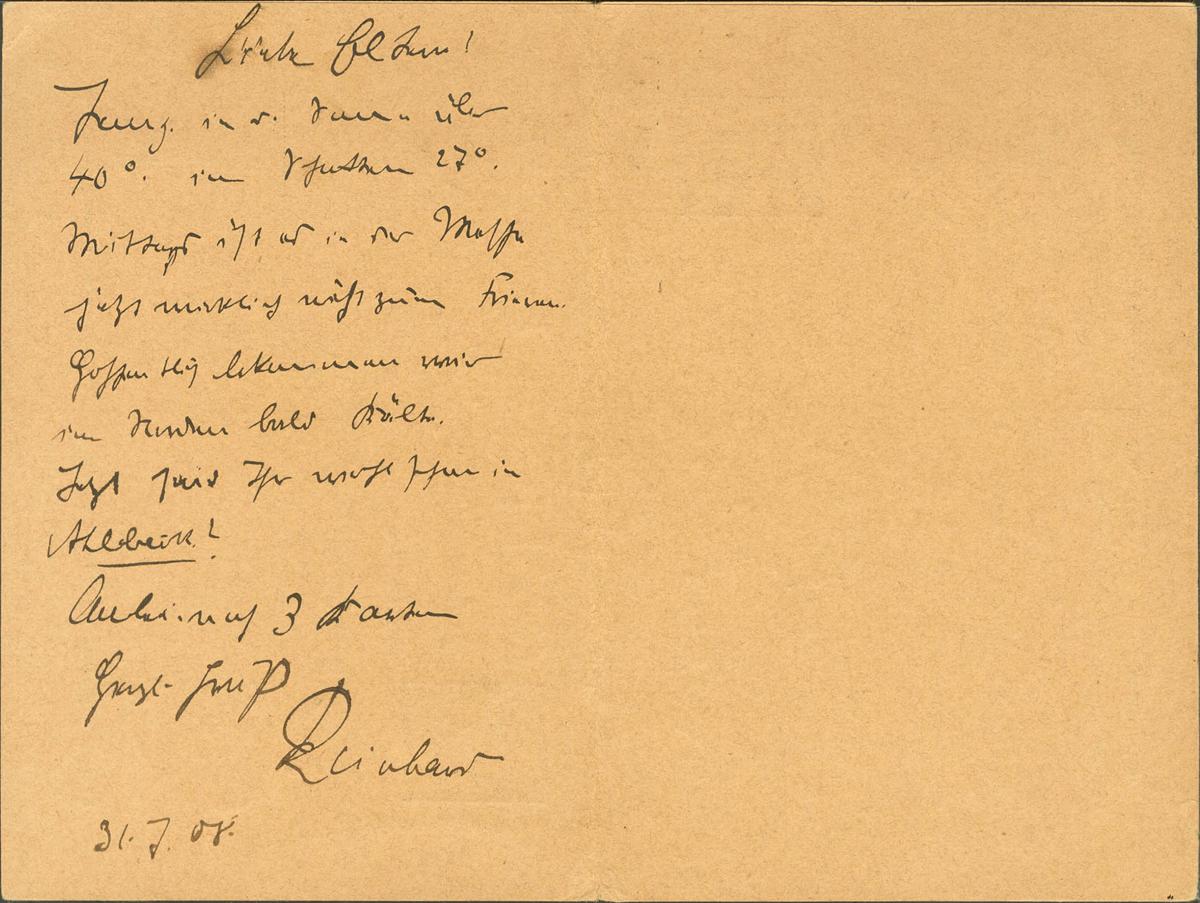 Liebe Eltern!
in d. Sonne über
40°. im Schatten 27°.
Mittags ist es in der Messe
jetzt wirklich nicht zum Frieren.
Hoffentlich bekommen wir
im Norden bald Kälte.
Jetzt seid Ihr wohl schon in
Ahlbeck?
Anbei noch 3 Karten
Herzl. Gruß
Reinhard
31.7.08.